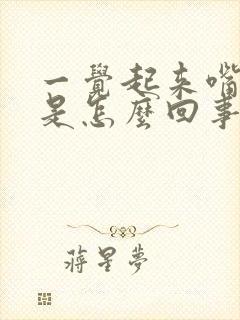 一覺起來嘴
是怎麼回事
蔣星夢